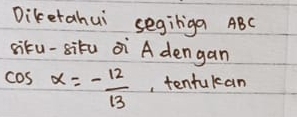 Diketahui segitiga ABC
siku-siku di A dengan
cos α = - 12/13, tentukan